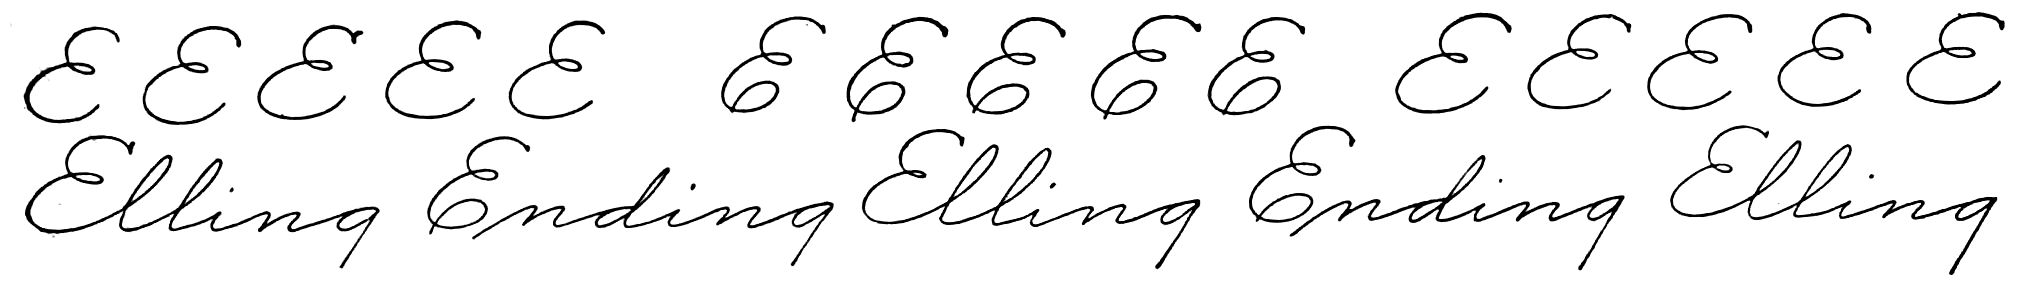 E E E E E E E E E E E E E E E
Elling Ending Elling Ending Elling